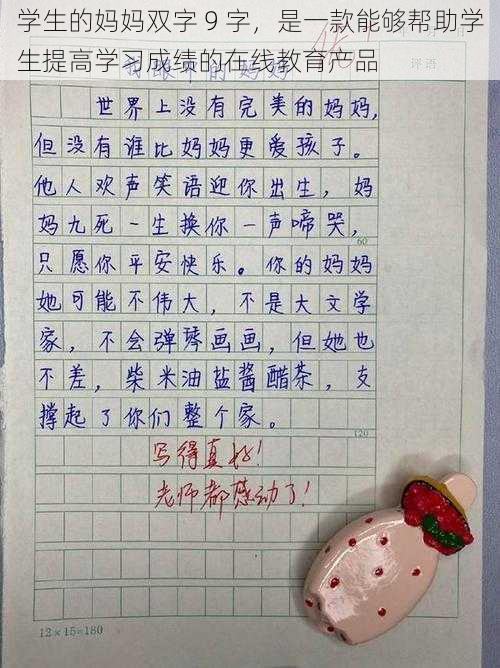 学生的妈妈双字 9 字，是一款能够帮助学
生提高学习成绩的在线教育产品
我眼中的妈妈
评语
世界上没有完美的妈妈,
但没有谁比妈妈更爱孩子。
他人欢声笑语迎你出生，妈
妈九死一生换你一声啼哭，
60
只愿你平安快乐。你的妈妈
她可能不伟大，不是大文学
家，不会弹琴画画，但她也
不差，柴米油盐酱醋茶，支
撑起了你们整个家。
120
写得真好!
老师都感动了!
12×15=180